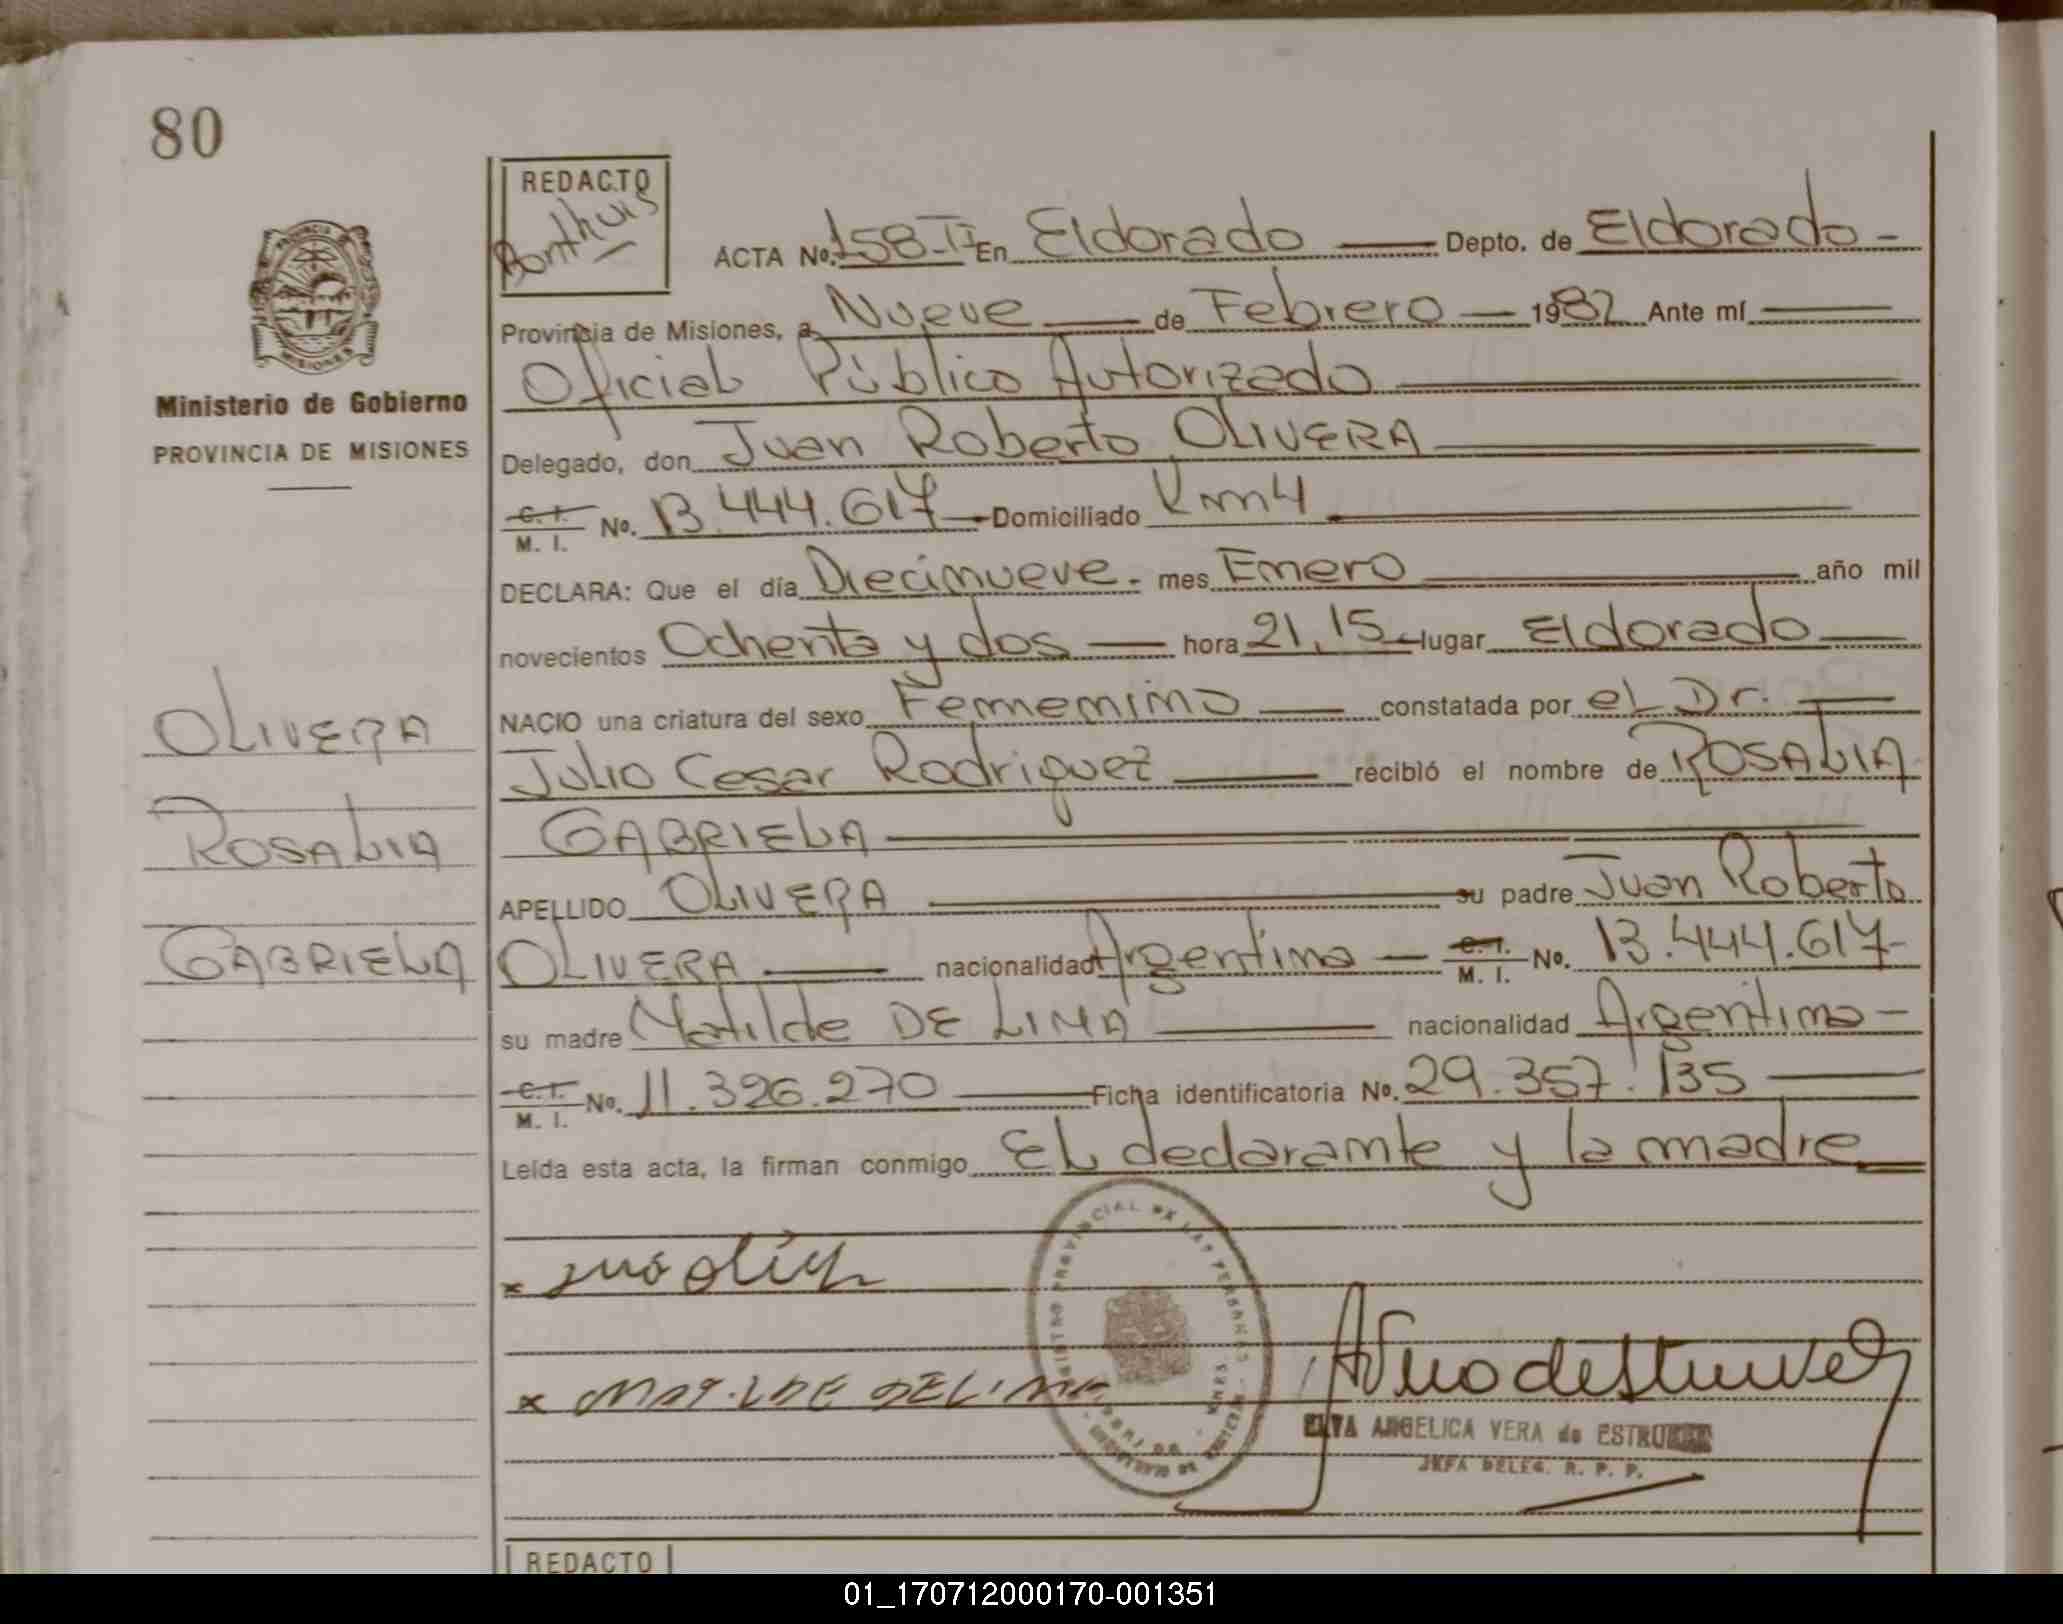 80
REDACTO
Bonthuis
ACTA No. 158-II En Eldorado Depto. de Eldorado
Provincia de Misiones, a Nueve de Febrero 1982 Ante mí
Oficial Público Autorizado
Ministerio de Gobierno
PROVINCIA DE MISIONES
Delegado, don Juan Roberto OLIVERA
C. I. M. I. No. 13.444.617 Domiciliado Km 4
DECLARA: Que el día Diecinueve. mes Enero año mil
novecientos Ochenta y dos hora 21,15 lugar Eldorado
NACIO una criatura del sexo Femenino constatada por el Dr.
Julio Cesar Rodriguez recibió el nombre de ROSALIA
GABRIELA
OLIVERA
ROSALIA
GABRIELA
APELLIDO OLIVERA su padre Juan Roberto
OLIVERA nacionalidad Argentina C. I. M. I. No. 13.444.617
su madre Matilde DE LIMA nacionalidad Argentina
C. I. M. I. No. 11.326.270 Ficha identificatoria No. 29.357.135
Leída esta acta, la firman conmigo El declarante y la madre
x
x MATILDE DE LIMA
ELVA ANGELICA VERA de
JEFA DELEG. R. P. P.
REDACTO
01_170712000170-001351